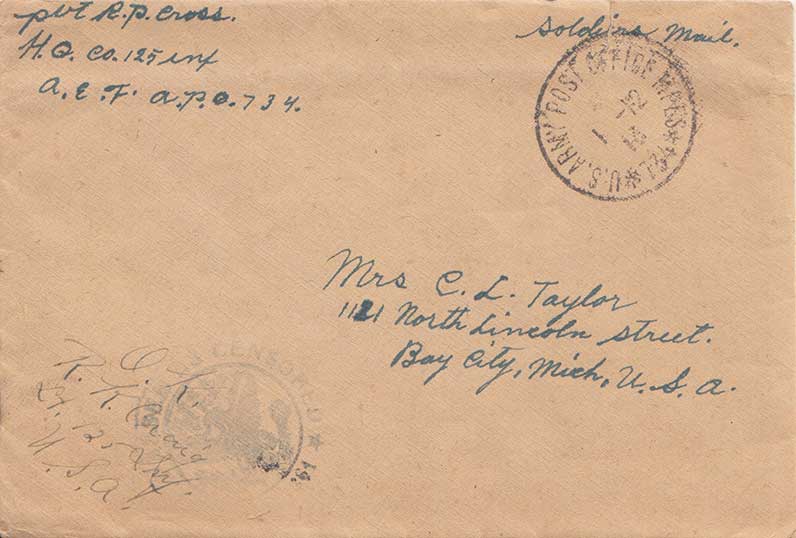 pvt R.P. Cross.
H.Q. Co. 125 inf
A.E.F. A.P.O. 734.
Soldiers Mail.
U.S. ARMY POST OFFICE M.P.E.S
Mrs C. L. Taylor
1121 North Lincoln street.
Bay City, Mich, U.S.A.
CENSORED
O.K.
R. K.
Lt. 125 Inf.
U.S.A.